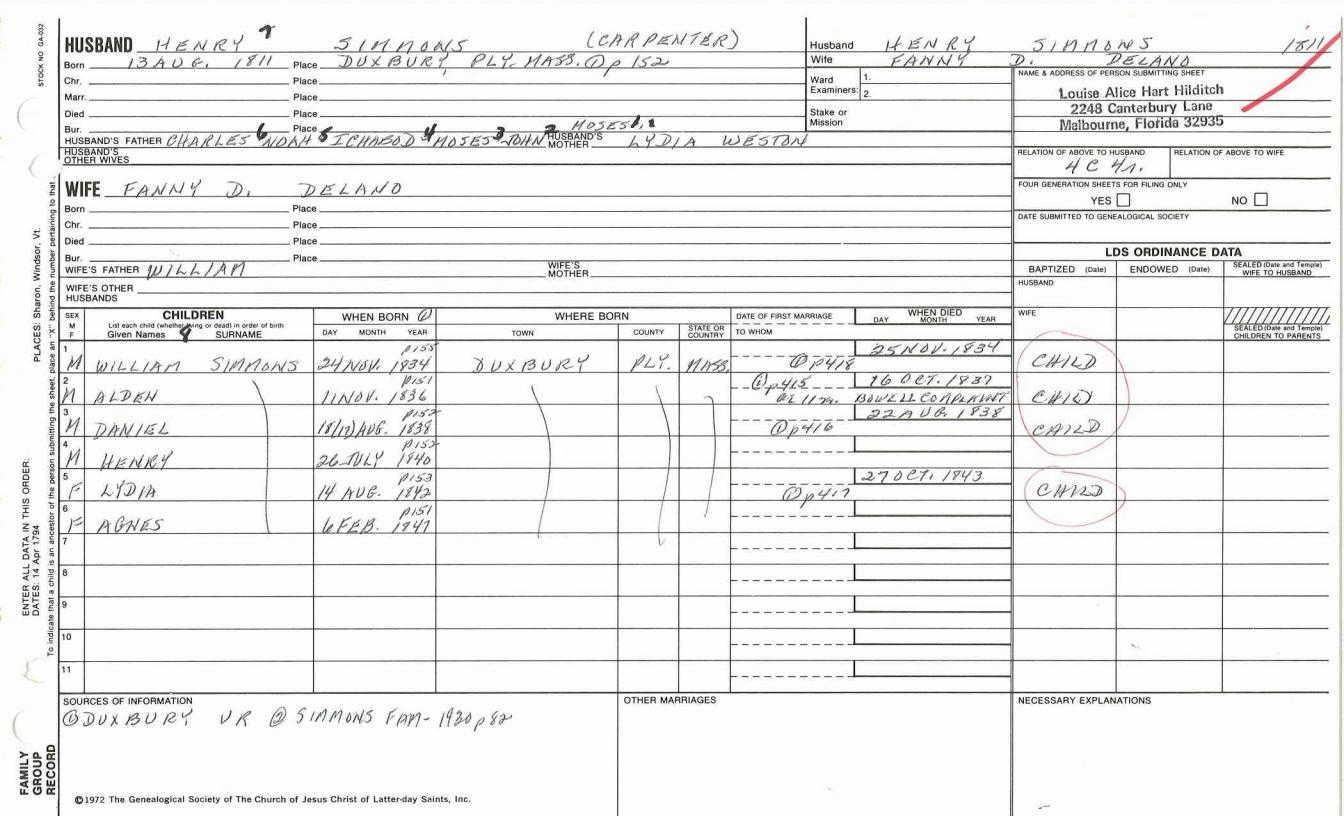 STOCK NO GA-032
HUSBAND HENRY 7 SIMMONS (CARPENTER)
Born 13 AUG. 1811 Place DUXBURY, PLY. MASS. ① p 152
Chr. Place
Marr. Place
Died Place
Bur. Place MOSES 1,1
HUSBAND'S FATHER CHARLES 6 NOAH 5 ICHABOD 4 MOSES 3 JOHN 2 HUSBAND'S MOTHER LYDIA WESTON
HUSBAND'S OTHER WIVES
Husband HENRY SIMMONS 1811
Wife FANNY D. DELAND
Ward Examiners: 1.
2.
Stake or Mission
NAME & ADDRESS OF PERSON SUBMITTING SHEET
Louise Alice Hart Hilditch
2248 Canterbury Lane
Melbourne, Florida 32935
RELATION OF ABOVE TO HUSBAND RELATION OF ABOVE TO WIFE
4 C 4r.
FOUR GENERATION SHEETS FOR FILING ONLY
YES NO
DATE SUBMITTED TO GENEALOGICAL SOCIETY
WIFE FANNY D. DELANO
Born Place
Chr. Place
Died Place
Bur. Place
WIFE'S FATHER WILLIAM WIFE'S MOTHER
WIFE'S OTHER HUSBANDS
LDS ORDINANCE DATA
BAPTIZED (Date) ENDOWED (Date) SEALED (Date and Temple) WIFE TO HUSBAND
HUSBAND
WIFE
SEALED (Date and Temple) CHILDREN TO PARENTS
SEX M F CHILDREN WHEN BORN ① WHERE BORN DATE OF FIRST MARRIAGE WHEN DIED
List each child (whether living or dead) in order of birth
Given Names 8 SURNAME DAY MONTH YEAR TOWN COUNTY STATE OR COUNTRY TO WHOM DAY MONTH YEAR
1 p155 25 NOV. 1834
M WILLIAM SIMMONS 24 NOV. 1834 DUXBURY PLY. MASS. ① p418 CHILD
2 p151 ① p415 16 OCT. 1837
M ALDEN 11 NOV. 1836 BOWELL COMPLAINT CHILD
3 p152 22 AUG. 1838
M DANIEL 18/(17) AUG. 1838 ① p416 CHILD
4 p152
M HENRY 26 JULY 1840
5 p153 27 OCT. 1843
F LYDIA 14 AUG. 1842 ① p417 CHILD
6 p151
F AGNES 6 FEB. 1847
7
8
9
10
11
SOURCES OF INFORMATION OTHER MARRIAGES NECESSARY EXPLANATIONS
① DUXBURY VR ② SIMMONS FAM- 1930 p 82
©1972 The Genealogical Society of The Church of Jesus Christ of Latter-day Saints, Inc.
FAMILY GROUP RECORD
ENTER ALL DATA IN THIS ORDER:
DATES: 14 Apr 1794
PLACES: Sharon, Windsor, Vt.
To indicate that a child is an ancestor of the person submitting the sheet, place an "X" behind the number pertaining to that